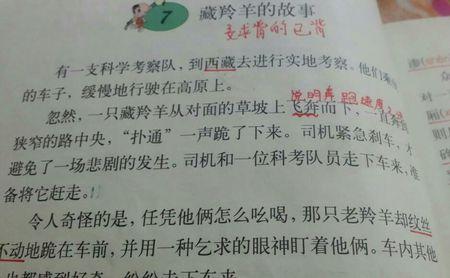 7 藏羚羊的故事
要求背的已背
有一支科学考察队，到西藏去进行实地考察。他们乘
的车子，缓慢地行驶在高原上。
说明奔跑速度
忽然，一只藏羚羊从对面的草坡上飞奔而下，一直奔到
狭窄的路中央，“扑通”一声跪了下来。司机紧急刹车，才
避免了一场悲剧的发生。司机和一位科考队员走下车来，准
备将它赶走。
令人奇怪的是，任凭他俩怎么吆喝，那只老羚羊却纹丝
不动地跪在车前，并用一种乞求的眼神盯着他俩。车内其他
也都感到好奇，纷纷走下车来
对一
厢
则